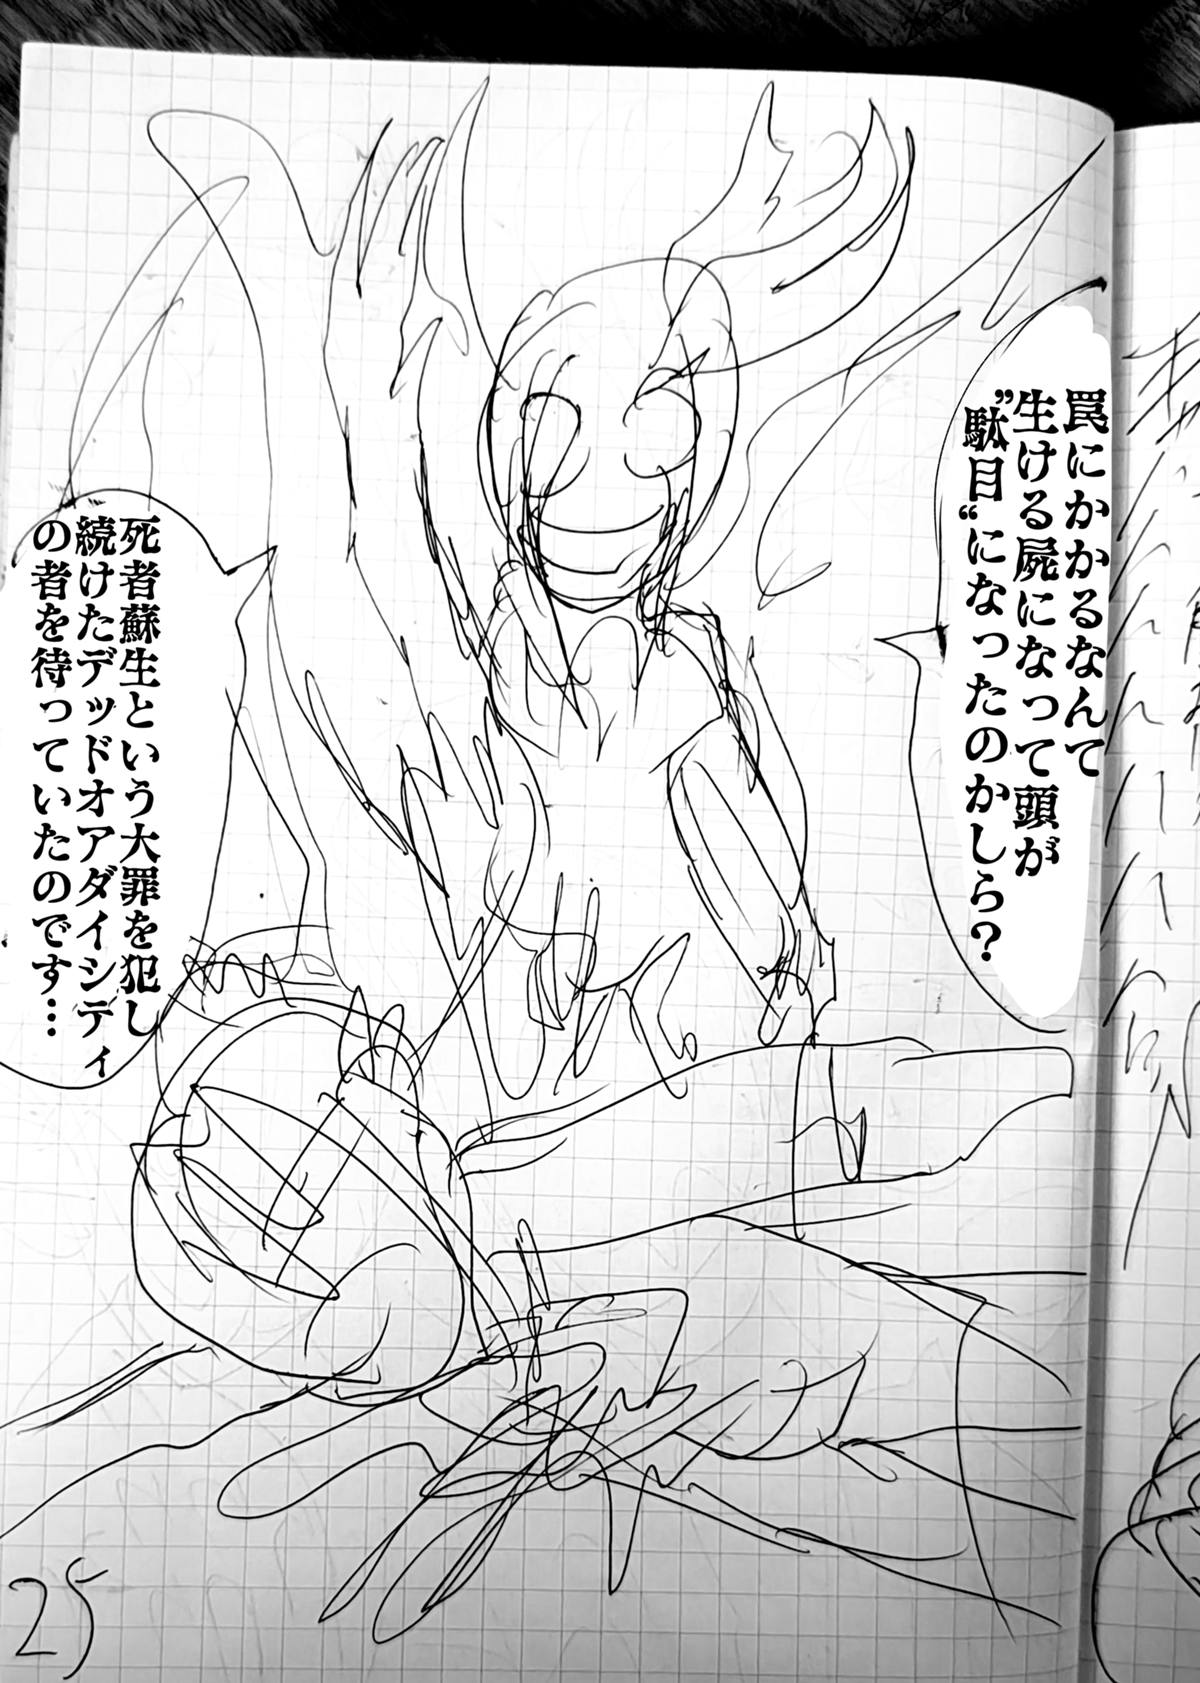 罠にかかるなんて
生ける屍になって頭が
”駄目“になったのかしら？
死者蘇生という大罪を犯し
続けたデッドオアダイシディ
の者を待っていたのです…
25